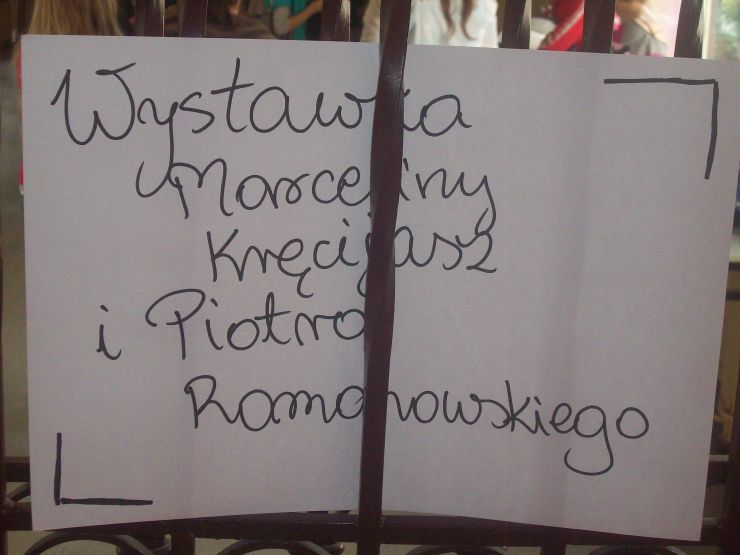 Wystawa
Marceliny
Kręcijasz
i Piotra
Romanowskiego